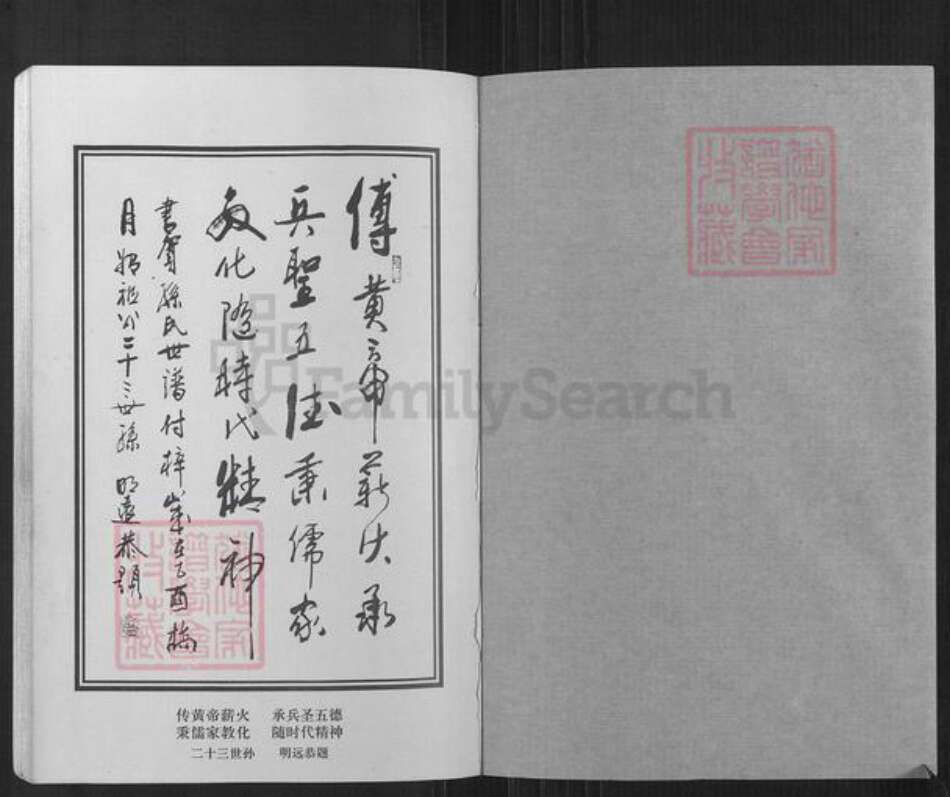 傳黄帝薪火承
兵聖五德秉儒家
教化隨時代精神
書賀孫氏世譜付梓歲在乙酉梅
月始祖公二十三世孫 明遠恭題
传黄帝薪火 承兵圣五德
秉儒家教化 随时代精神
二十三世孙 明远恭题
FamilySearch
譜學會
收藏